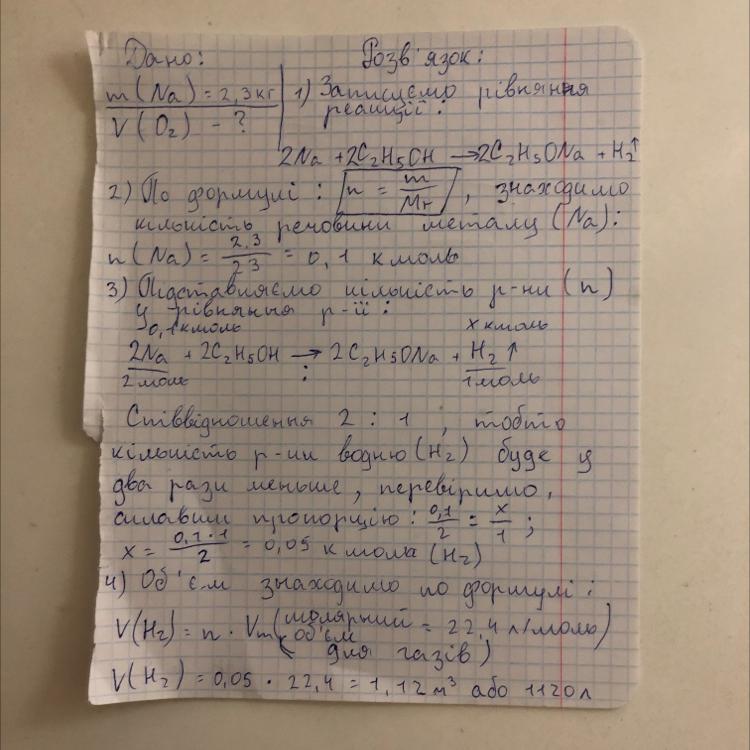 Дано:
Розв'язок:
m(Na) = 2,3 кг
V(O₂) - ?
1) Записуємо рівняння
реакції:
2Na + 2C₂H₅OH → 2C₂H₅ONa + H₂↑
2) По формулі: n = m/Mr, знаходимо
кількість речовини металу (Na):
n(Na) = 2,3/23 = 0,1 кмоль
3) Підставляємо кількість р-ни (n)
у рівняння р-ії:
0,1 кмоль x кмоль
2Na + 2C₂H₅OH → 2C₂H₅ONa + H₂↑
2 моль : 1 моль
Співвідношення 2 : 1, тобто
кількість р-ни водню (H₂) буде у
два рази меньше, перевіримо,
склавши пропорцію: 0,1/2 = x/1;
x = 0,1·1/2 = 0,05 кмоль (H₂)
4) Об'єм знаходимо по формулі:
V(H₂) = n · Vm (молярний об'єм = 22,4 л/моль)
( для газів )
V(H₂) = 0,05 · 22,4 = 1,12 м³ або 1120 л